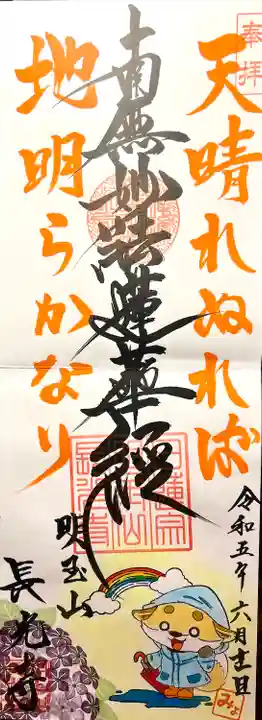 奉拝
天晴れぬれば
地明らかなり
南無妙法蓮華経
令和五年六月十一日
明玉山
長光寺
みな